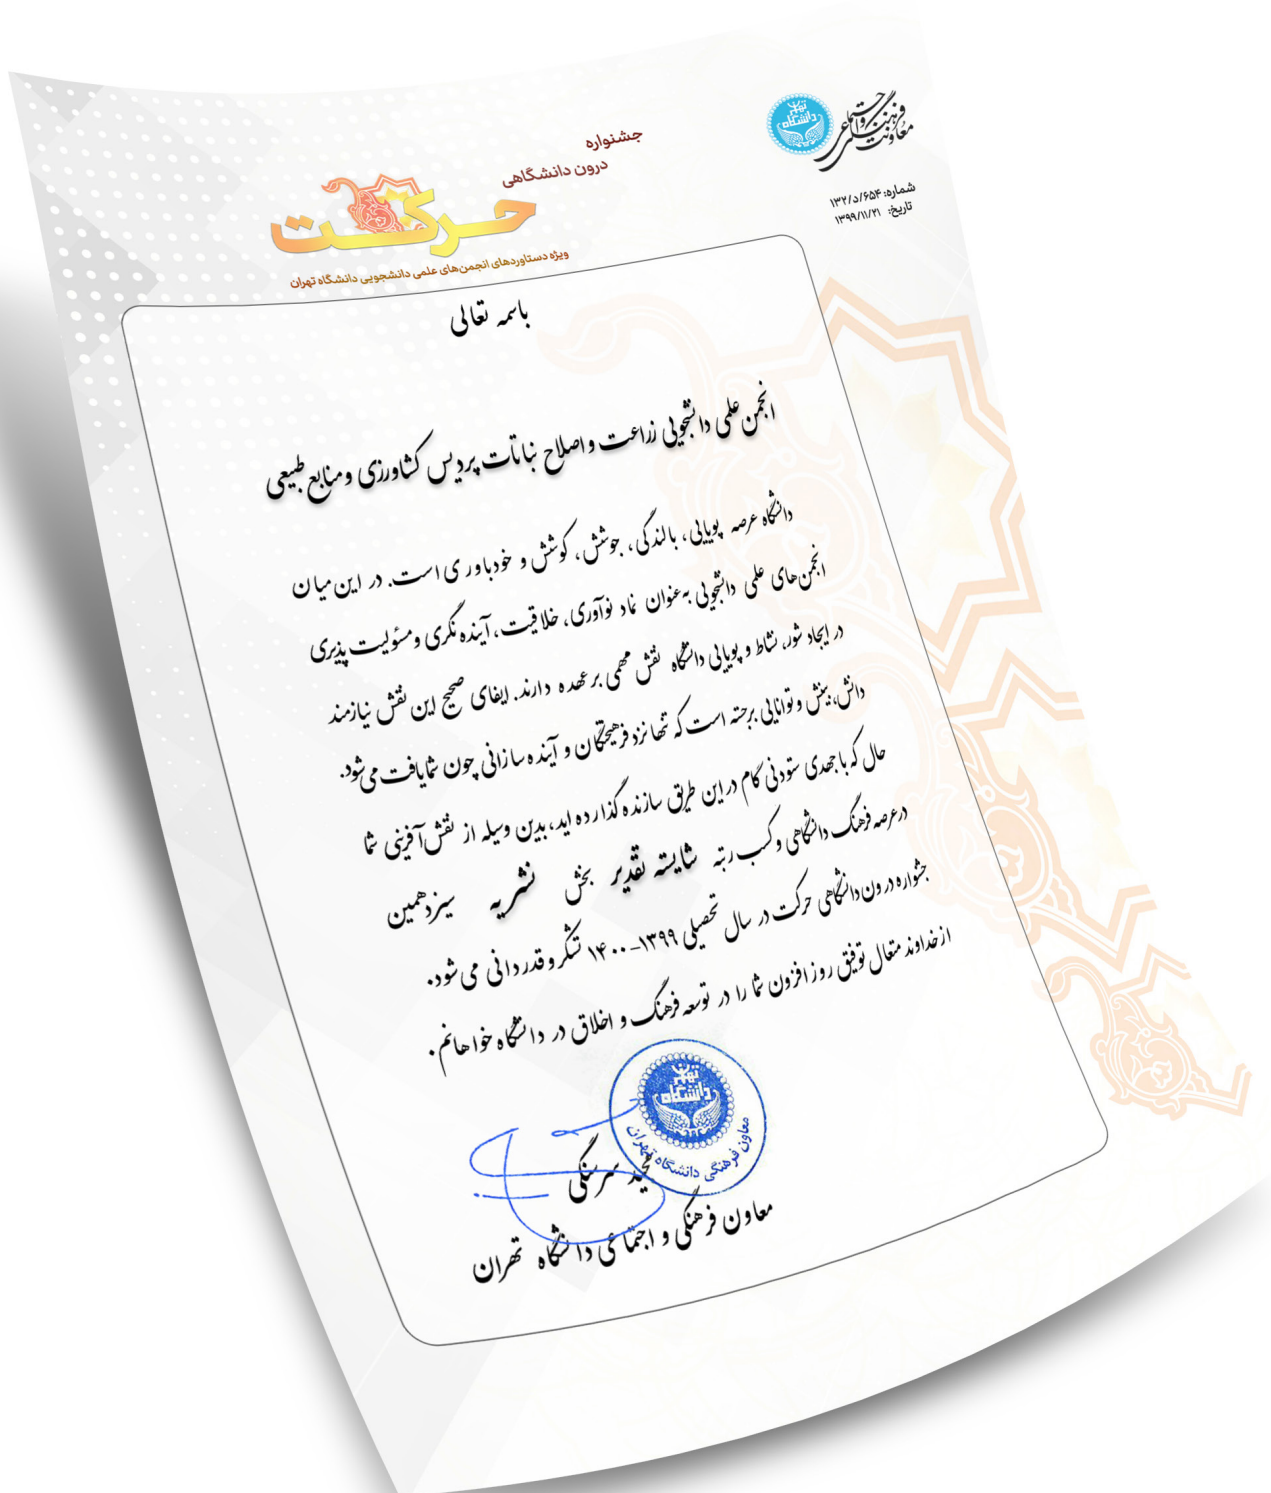 معاونت فرهنگی و اجتماعی
دانشگاه تهران
شماره: ۱۳۲/د/۶۵۴
تاریخ: ۱۳۹۹/۱۱/۲۱
جشنواره
درون دانشگاهی
حرکت
ویژه دستاوردهای انجمن‌های علمی دانشجویی دانشگاه تهران
باسمه تعالی
انجمن علمی دانشجویی زراعت و اصلاح نباتات پردیس کشاورزی و منابع طبیعی
دانشگاه عرصه پویایی، بالندگی، جوشش، کوشش و خودباوری است. در این میان
انجمن‌های علمی دانشجویی به‌عنوان نماد نوآوری، خلاقیت، آینده نگری و مسئولیت پذیری
در ایجاد شور، نشاط و پویایی دانشگاه نقش مهمی بر عهده دارند. ایفای صحیح این نقش نیازمند
دانش، بینش و توانایی برجسته است که تنها نزد فرهیختگان و آینده سازانی چون شما یافت می‌شود.
حال که با جهدی ستودنی گام در این طریق سازنده گذارده اید، بدین وسیله از نقش آفرینی شما
در عرصه فرهنگ دانشگاهی و کسب رتبه شایسته تقدیر بخش نشریه سیزدهمین
جشنواره درون دانشگاهی حرکت در سال تحصیلی ۱۳۹۹-۱۴۰۰ تشکر و قدردانی می شود.
از خداوند متعال توفیق روز افزون شما را در توسعه فرهنگ و اخلاق در دانشگاه خواهانم.
دانشگاه تهران
معاون فرهنگی دانشگاه تهران
مجید سرسنگی
معاون فرهنگی و اجتماعی دانشگاه تهران